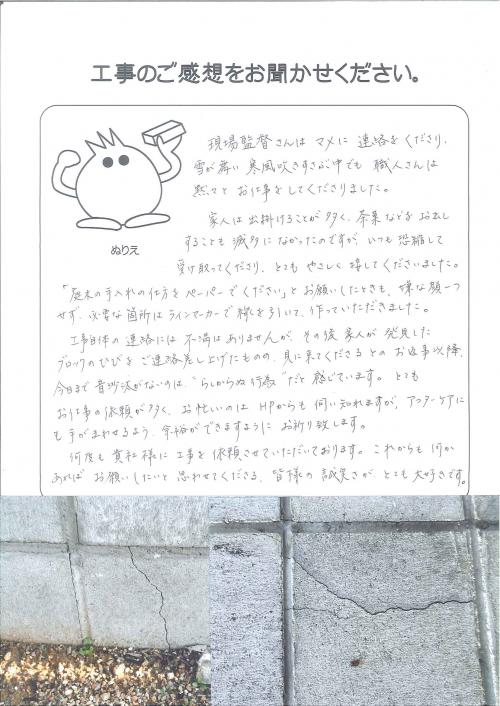 工事のご感想をお聞かせください。
現場監督さんは マメに 連絡をくださり、
雪が舞い 寒風吹きすさぶ中でも 職人さんは
黙々と お仕事をしてくださいました。
家人は出掛けることが多く、茶菓などをお出し
することも 滅多になかったのですが、いつも恐縮して
受け取ってくださり、とても やさしく 接してくださいました。
ぬりえ
「庭木の手入れの仕方をペーパーでください」とお願いしたときも、嫌な顔一つ
せず、必要な箇所はラインマーカーで線を引いて、作っていただきました。
工事自体の連絡には 不満はありませんが、その後 家人が 発見した
ブロックのひびを ご連絡差し上げたものの、見に来てくださるとの お返事以降、
今日まで 音沙汰がないのは、"らしからぬ行為"だと 感じています。とても
お仕事の依頼が多く、お忙しいのは HPからも 伺い知れますが、アフターケアに
も手がまわせるよう、余裕ができますように お祈り致します。
何度も 貴社様に 工事を 依頼させていただいております。これからも 何か
あれば お願いしたいと 思わせてくださる、皆様の 誠実さが、とても 大好きです。